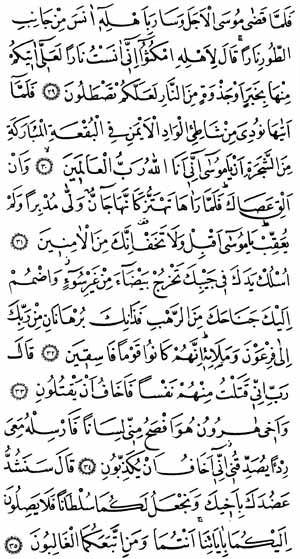 فَلَمَّا قَضَىٰ مُوسَى الْأَجَلَ وَسَارَ بِأَهْلِهِ آنَسَ مِنْ جَانِبِ
الطُّورِ نَارًا قَالَ لِأَهْلِهِ امْكُثُوا إِنِّي آنَسْتُ نَارًا لَعَلِّي آتِيكُمْ
مِنْهَا بِخَبَرٍ أَوْ جَذْوَةٍ مِنَ النَّارِ لَعَلَّكُمْ تَصْطَلُونَ ﴿٢٩﴾ فَلَمَّا
أَتَاهَا نُودِيَ مِنْ شَاطِئِ الْوَادِ الْأَيْمَنِ فِي الْبُقْعَةِ الْمُبَارَكَةِ
مِنَ الشَّجَرَةِ أَنْ يَا مُوسَىٰ إِنِّي أَنَا اللَّهُ رَبُّ الْعَالَمِينَ ﴿٣٠﴾ وَأَنْ
أَلْقِ عَصَاكَ فَلَمَّا رَآهَا تَهْتَزُّ كَأَنَّهَا جَانٌّ وَلَّىٰ مُدْبِرًا وَلَمْ
يُعَقِّبْ يَا مُوسَىٰ أَقْبِلْ وَلَا تَخَفْ إِنَّكَ مِنَ الْآمِنِينَ ﴿٣١﴾
اسْلُكْ يَدَكَ فِي جَيْبِكَ تَخْرُجْ بَيْضَاءَ مِنْ غَيْرِ سُوءٍ وَاضْمُمْ
إِلَيْكَ جَنَاحَكَ مِنَ الرَّهْبِ فَذَانِكَ بُرْهَانَانِ مِنْ رَبِّكَ
إِلَىٰ فِرْعَوْنَ وَمَلَئِهِ إِنَّهُمْ كَانُوا قَوْمًا فَاسِقِينَ ﴿٣٢﴾ قَالَ
رَبِّ إِنِّي قَتَلْتُ مِنْهُمْ نَفْسًا فَأَخَافُ أَنْ يَقْتُلُونِ ﴿٣٣﴾
وَأَخِي هَارُونُ هُوَ أَفْصَحُ مِنِّي لِسَانًا فَأَرْسِلْهُ مَعِيَ
رِدْءًا يُصَدِّقُنِي إِنِّي أَخَافُ أَنْ يُكَذِّبُونِ ﴿٣٤﴾ قَالَ سَنَشُدُّ
عَضُدَكَ بِأَخِيكَ وَنَجْعَلُ لَكُمَا سُلْطَانًا فَلَا يَصِلُونَ
إِلَيْكُمَا بِآيَاتِنَا أَنْتُمَا وَمَنِ اتَّبَعَكُمَا الْغَالِبُونَ ﴿٣٥﴾